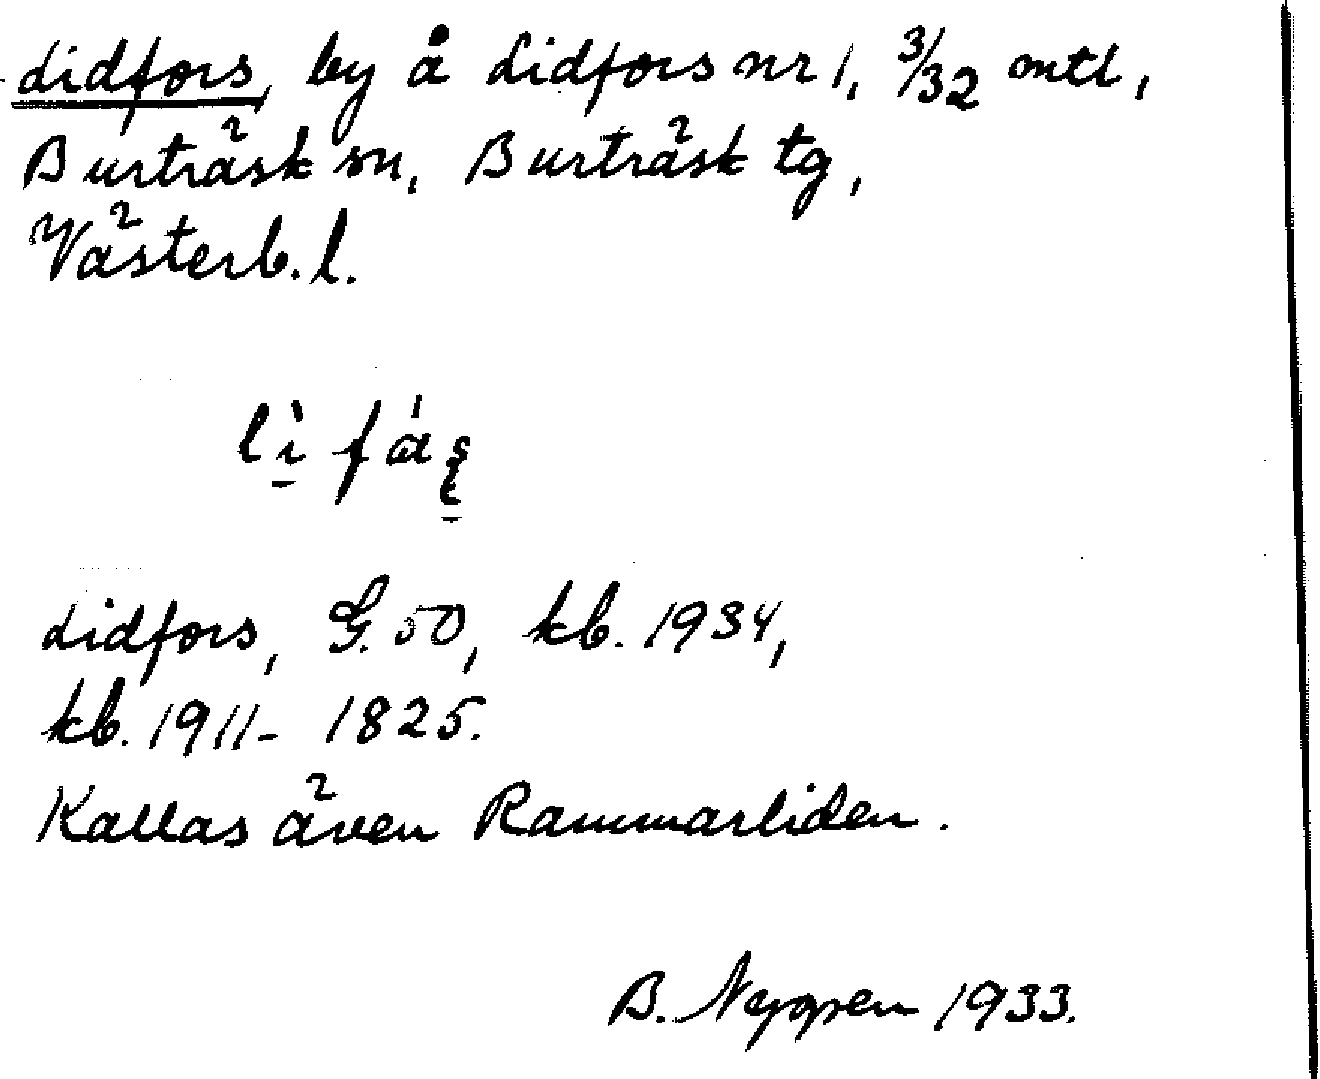 Lidfors, by å Lidfors nr 1, 3/32 mtl,
Burträsk sn, Burträsk tg,
Västerb. l.
Lidfors, G. 50, kb. 1934,
kb. 1911 - 1825.
Kallas även Rammarliden.
B. Nygren 1933.